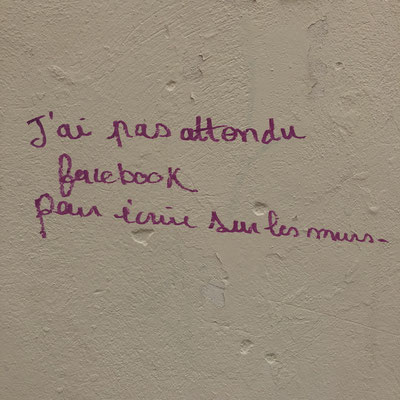 J'ai pas attendu
facebook
pour écrire sur les murs-